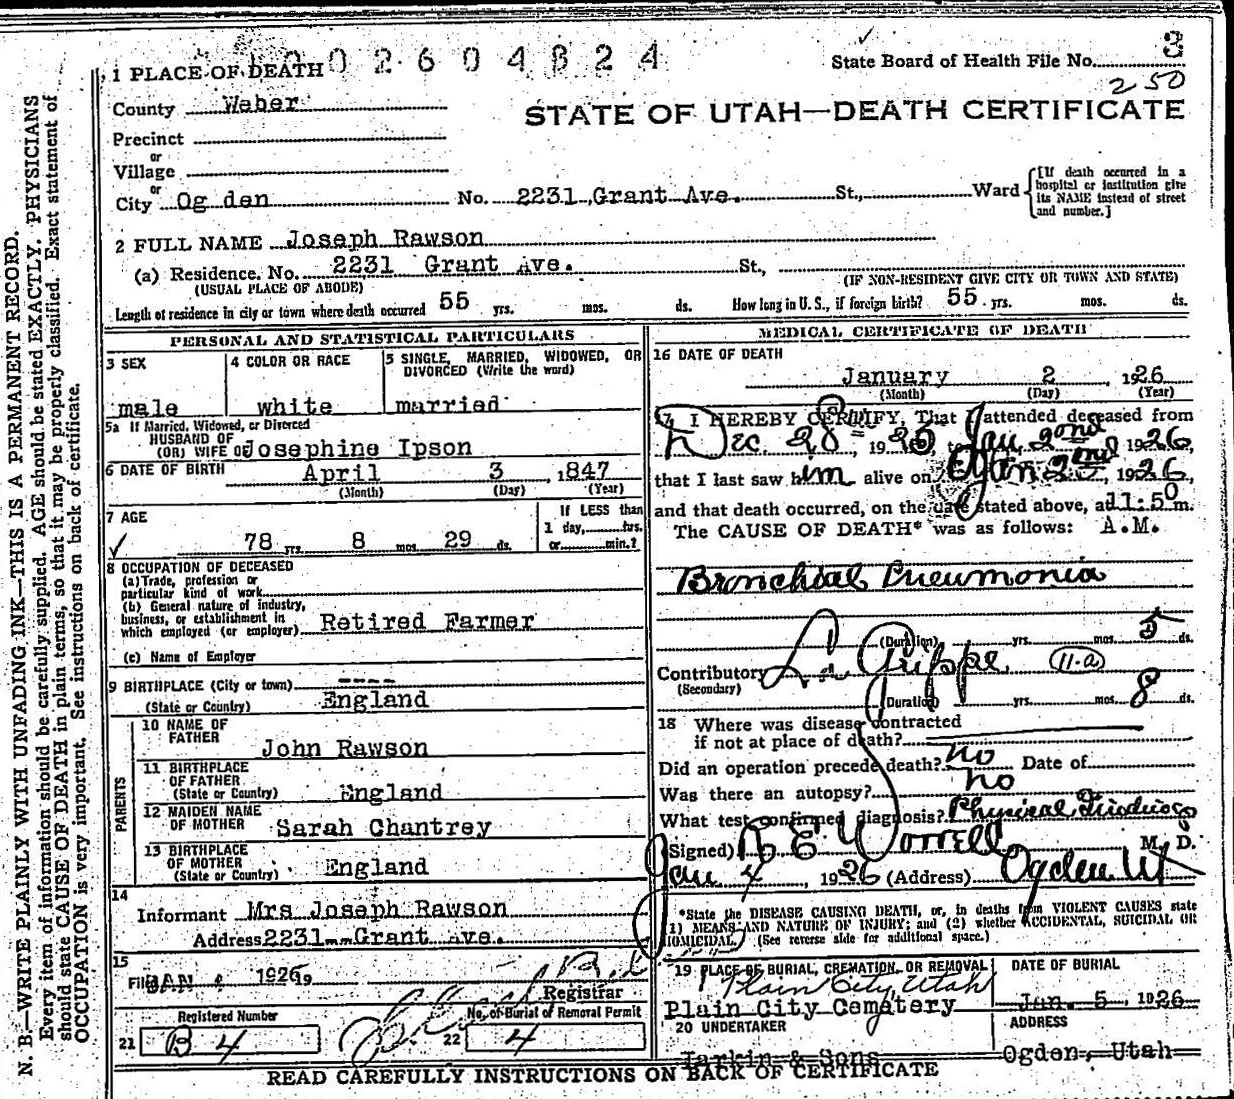 02604824
State Board of Health File No. 3
250
1 PLACE OF DEATH
County Weber
STATE OF UTAH—DEATH CERTIFICATE
Precinct
or
Village
or
City Ogden No. 2231 Grant Ave. St., Ward
[If death occurred in a
hospital or institution give
its NAME instead of street
and number.]
2 FULL NAME Joseph Rawson
(a) Residence. No. 2231 Grant Ave. St.,
(USUAL PLACE OF ABODE) (IF NON-RESIDENT GIVE CITY OR TOWN AND STATE)
Length of residence in city or town where death occurred 55 yrs. mos. ds. How long in U. S., if foreign birth? 55 yrs. mos. ds.
PERSONAL AND STATISTICAL PARTICULARS
3 SEX
male
4 COLOR OR RACE
white
5 SINGLE, MARRIED, WIDOWED, OR
DIVORCED (Write the word)
married
5a If Married, Widowed, or Divorced
HUSBAND OF
(OR) WIFE OF Josephine Ipson
6 DATE OF BIRTH April 3, 1847
(Month) (Day) (Year)
7 AGE
78 yrs. 8 mos. 29 ds.
If LESS than
1 day, hrs.
or min.?
8 OCCUPATION OF DECEASED
(a) Trade, profession or
particular kind of work
(b) General nature of industry,
business, or establishment in
which employed (or employer) Retired Farmer
(c) Name of Employer
9 BIRTHPLACE (City or town) ----
(State or Country) England
PARENTS
10 NAME OF
FATHER
John Rawson
11 BIRTHPLACE
OF FATHER
(State or Country) England
12 MAIDEN NAME
OF MOTHER Sarah Chantrey
13 BIRTHPLACE
OF MOTHER
(State or Country) England
14
Informant Mrs Joseph Rawson
Address 2231--Grant Ave.
15
Filed JAN 4 1926 19
Registrar
Registered Number
21 B 4
No. of Burial or Removal Permit
22 4
MEDICAL CERTIFICATE OF DEATH
16 DATE OF DEATH
January 2, 1926
(Month) (Day) (Year)
17 I HEREBY CERTIFY, That I attended deceased from
Dec. 28, 1925, to Jan 2nd 1926,
that I last saw him alive on Jan 2nd, 1926,
and that death occurred, on the date stated above, at 11:50 m.
The CAUSE OF DEATH* was as follows: A.M.
Bronchial Pneumonia
(Duration) yrs. mos. 5 ds.
Contributory La Grippe 11-a
(Secondary)
(Duration) yrs. mos. 8 ds.
18 Where was disease contracted
if not at place of death?
Did an operation precede death? no Date of
Was there an autopsy? no
What test confirmed diagnosis? Physical
(Signed) E Worrell M. D.
Jan 4, 1926 (Address) Ogden Ut
*State the DISEASE CAUSING DEATH, or, in deaths from VIOLENT CAUSES state
1) MEANS AND NATURE OF INJURY; and (2) whether ACCIDENTAL, SUICIDAL OR
HOMICIDAL. (See reverse side for additional space.)
19 PLACE OF BURIAL, CREMATION, OR REMOVAL
Plain City, Utah
Plain City Cemetery
DATE OF BURIAL
Jan. 5, 1926
20 UNDERTAKER
Larkin & Sons
ADDRESS
Ogden, Utah
READ CAREFULLY INSTRUCTIONS ON BACK OF CERTIFICATE
N. B.—WRITE PLAINLY WITH UNFADING INK—THIS IS A PERMANENT RECORD.
Every item of information should be carefully supplied. AGE should be stated EXACTLY. PHYSICIANS
should state CAUSE OF DEATH in plain terms, so that it may be properly classified. Exact statement of
OCCUPATION is very important. See instructions on back of certificate.